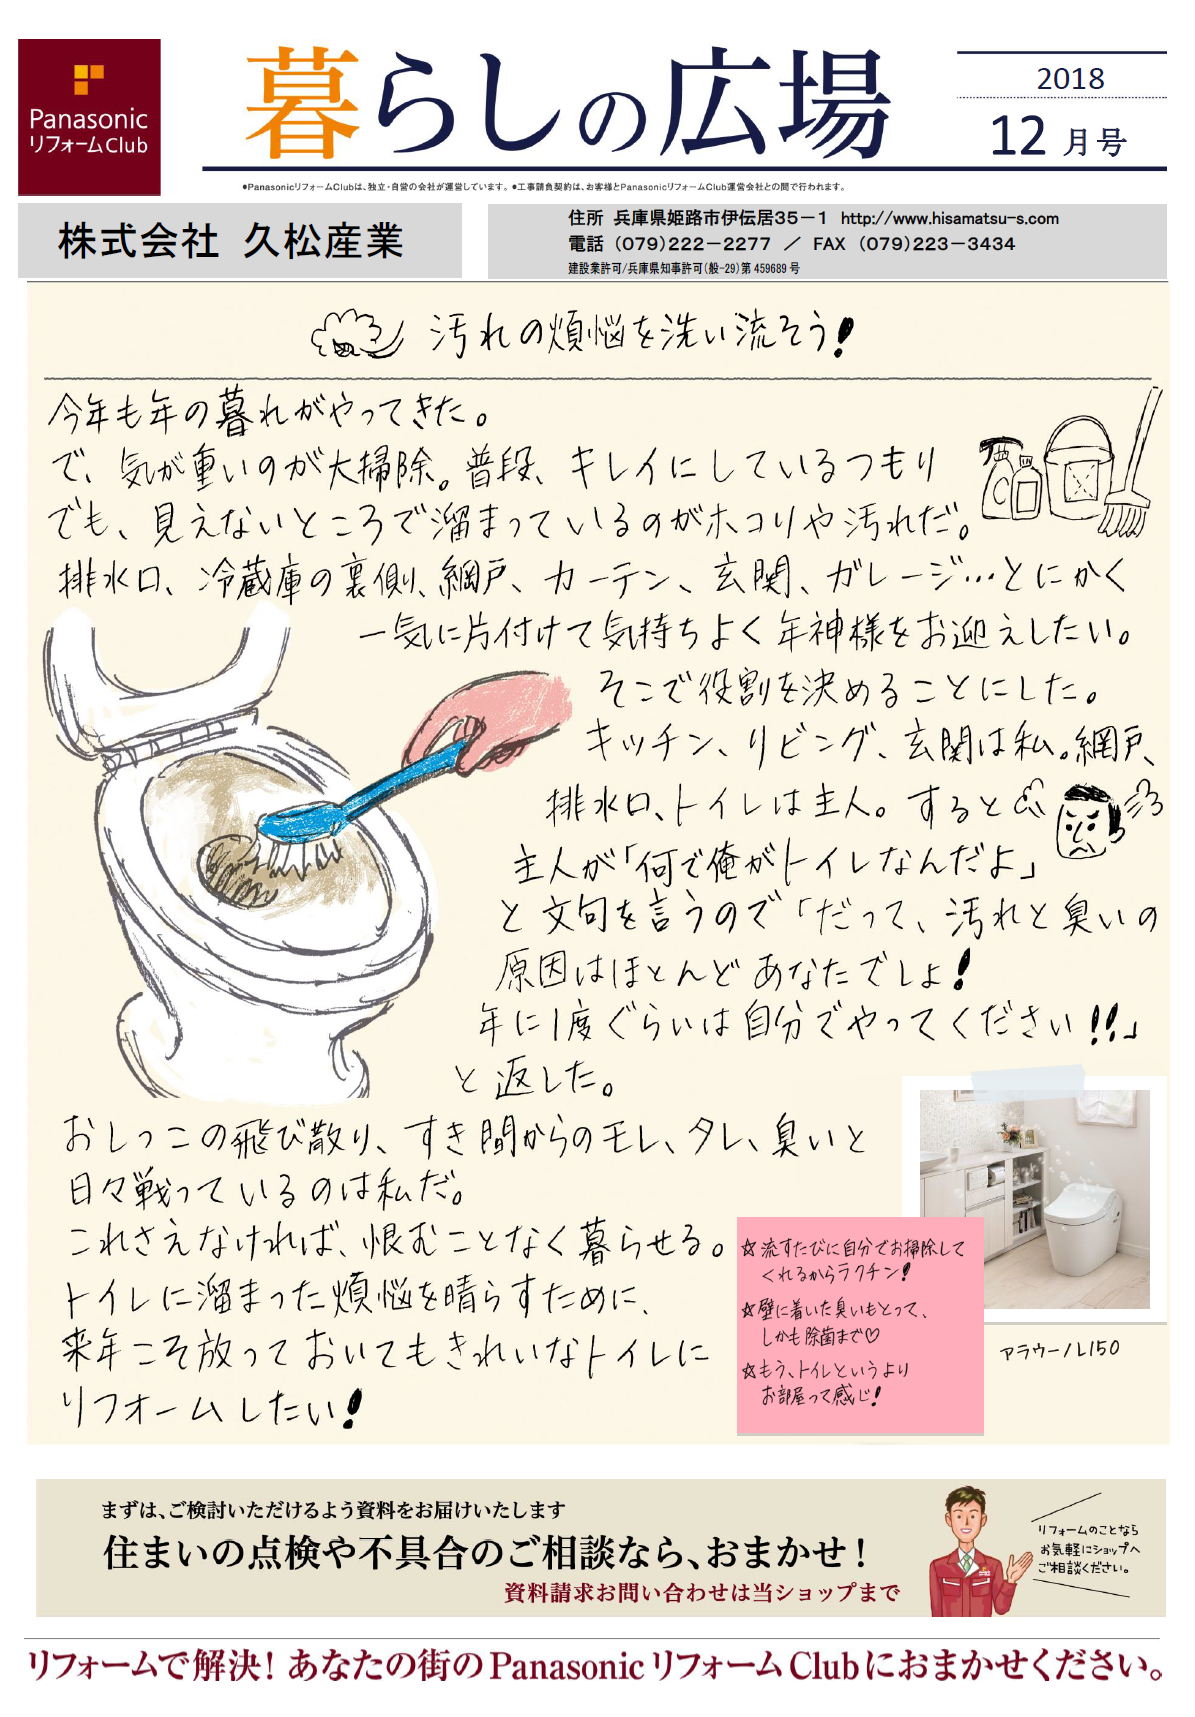 Panasonic
リフォームClub
暮らしの広場
2018
12月号
●PanasonicリフォームClubは、独立・自営の会社が運営しています。 ●工事請負契約は、お客様とPanasonicリフォームClub運営会社との間で行われます。
株式会社 久松産業
住所 兵庫県姫路市伊伝居35－1 http://www.hisamatsu-s.com
電話 (079)222－2277 ／ FAX (079)223－3434
建設業許可/兵庫県知事許可(般-29)第459689号
汚れの煩悩を洗い流そう!
今年も年の暮れがやってきた。
で、気が重いのが大掃除。普段、キレイにしているつもり
でも、見えないところで溜まっているのがホコリや汚れだ。
排水口、冷蔵庫の裏側、網戸、カーテン、玄関、ガレージ…とにかく
一気に片付けて気持ちよく年神様をお迎えしたい。
そこで役割を決めることにした。
キッチン、リビング、玄関は私。網戸、
排水口、トイレは主人。すると
主人が「何で俺がトイレなんだよ」
と文句を言うので「だって、汚れと臭いの
原因はほとんどあなたでしょ!
年に1度ぐらいは自分でやってください!!」
と返した。
おしっこの飛び散り、すき間からのモレ、タレ、臭いと
日々戦っているのは私だ。
これさえなければ、恨むことなく暮らせる。
トイレに溜まった煩悩を晴らすために、
来年こそ放っておいてもきれいなトイレに
リフォームしたい!
☆流すたびに自分でお掃除して
くれるからラクチン!
☆壁に着いた臭いもとって、
しかも除菌まで♡
☆もう、トイレというより
お部屋って感じ!
アラウーノL150
まずは、ご検討いただけるよう資料をお届けいたします
住まいの点検や不具合のご相談なら、おまかせ!
資料請求お問い合わせは当ショップまで
リフォームのことなら
お気軽にショップへ
ご相談ください。
リフォームで解決! あなたの街のPanasonicリフォームClubにおまかせください。